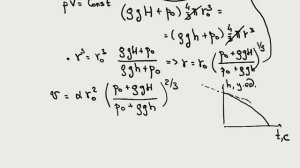 pV = const
(ρgH + p₀) 4/3 π r₀³ =
= (ρgh + p₀) 4/3 π r³
• r³ = r₀³ (ρgH + p₀)/(ρgh + p₀) => r = r₀ ((p₀ + ρgH)/(p₀ + ρgh))^1/3
v = α r₀² ((p₀ + ρgH)/(p₀ + ρgh))^2/3
h, у.ед.
t, c